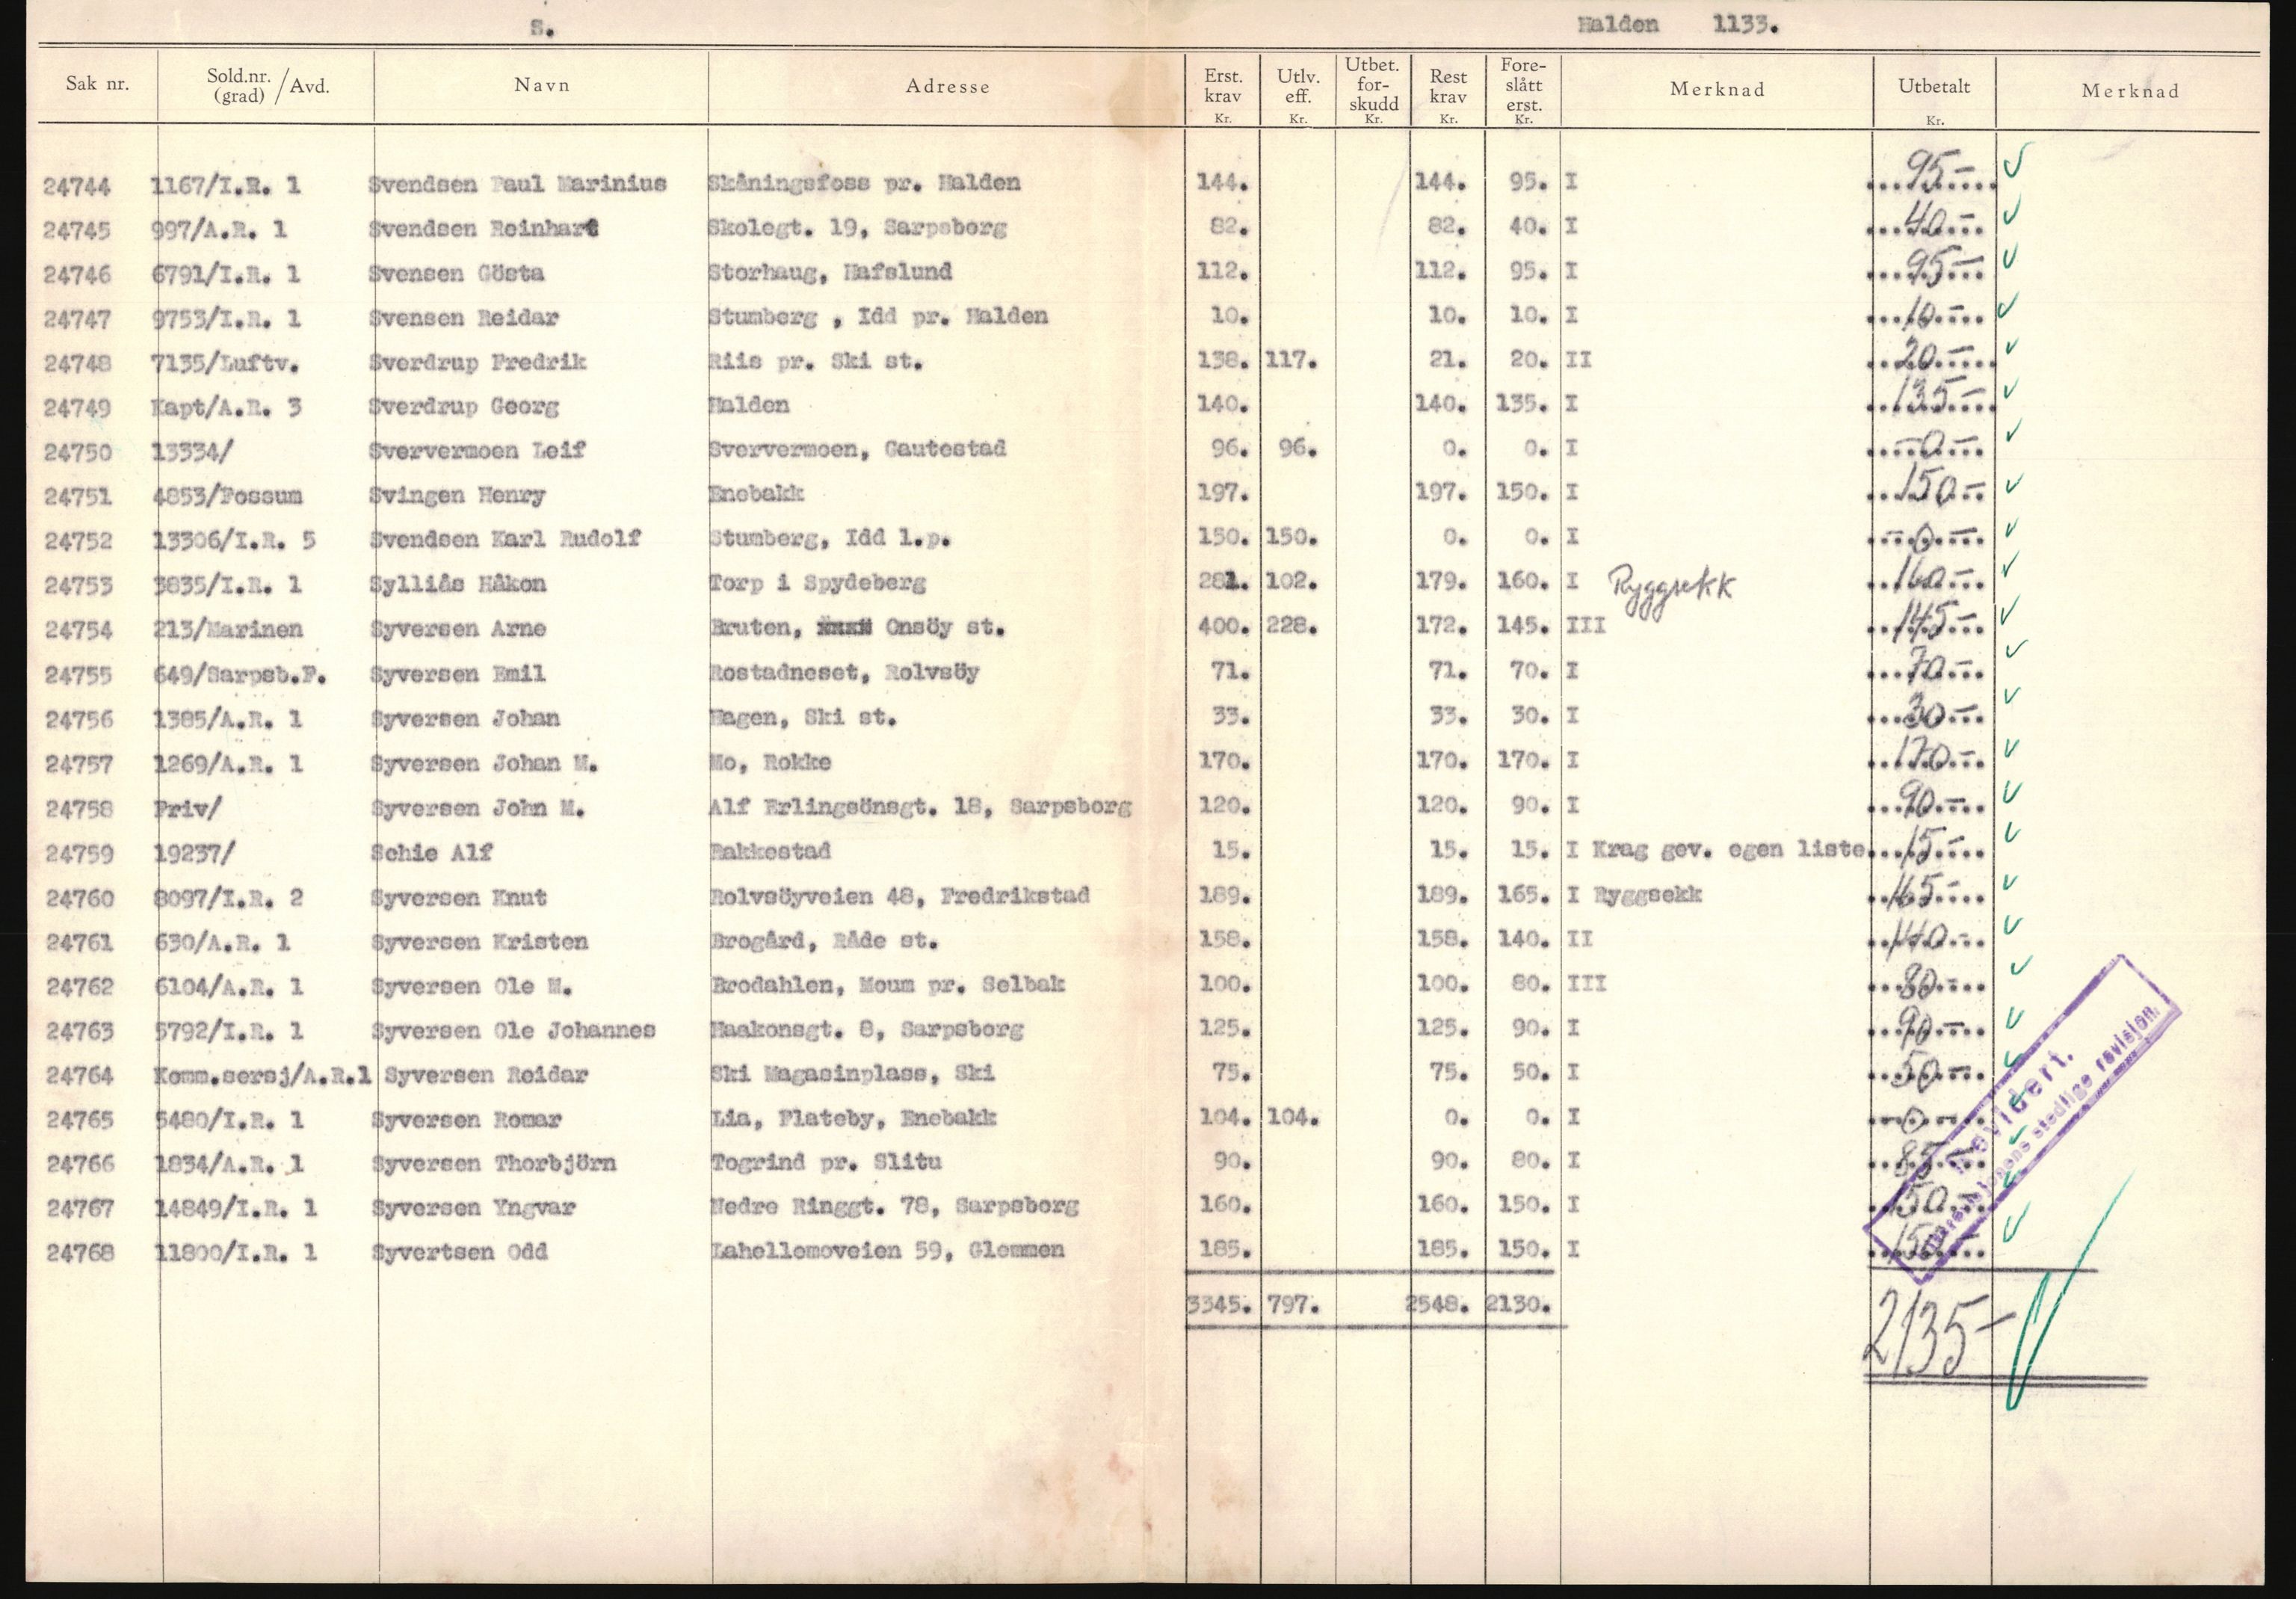 S. Halden 1133.
Sak nr. Sold.nr. (grad) / Avd. Navn Adresse Erst. krav Kr. Utlv. eff. Kr. Utbet. for- skudd Kr. Rest krav Kr. Fore- slått erst. Kr. Merknad Utbetalt Kr. Merknad
24744 1167/I.R. 1 Svendsen Paul Marinius Skåningsfoss pr. Halden 144. 144. 95. I 95.-
24745 997/A.R. 1 Svendsen Reinhart Skolegt. 19, Sarpsborg 82. 82. 40. I 40.-
24746 6791/I.R. 1 Svensen Gösta Storhaug, Hafslund 112. 112. 95. I 95.-
24747 9753/I.R. 1 Svensen Reidar Stumberg , Idd pr. Halden 10. 10. 10. I 10.-
24748 7135/Luftv. Sverdrup Fredrik Riis pr. Ski st. 138. 117. 21. 20. II 20.-
24749 Kapt/A.R. 3 Sverdrup Georg Halden 140. 140. 135. I 135.-
24750 13334/ Sververmoen Leif Sververmoen, Gautestad 96. 96. 0. 0. I -0-
24751 4853/Fossum Svingen Henry Enebakk 197. 197. 150. I 150.-
24752 13306/I.R. 5 Svendsen Karl Rudolf Stumberg, Idd l.p. 150. 150. 0. 0. I -0-
24753 3835/I.R. 1 Sylliås Håkon Torp i Spydeberg 281. 102. 179. 160. I Ryggsekk 160.-
24754 213/Marinen Syversen Arne Bruten, Onsöy st. 400. 228. 172. 145. III 145.-
24755 649/Sarpsb.F. Syversen Emil Rostadneset, Rolvsöy 71. 71. 70. I 70.-
24756 1385/A.R. 1 Syversen Johan Hagen, Ski st. 33. 33. 30. I 30.-
24757 1269/A.R. 1 Syversen Johan M. Mo, Rokke 170. 170. 170. I 170.-
24758 Priv/ Syversen John M. Alf Erlingsönsgt. 18, Sarpsborg 120. 120. 90. I 90.-
24759 19237/ Schie Alf Rakkestad 15. 15. 15. I Krag gev. egen liste 15.-
24760 8097/I.R. 2 Syversen Knut Rolvsöyveien 48, Fredrikstad 189. 189. 165. I Ryggsekk 165.-
24761 630/A.R. 1 Syversen Kristen Brogård, Råde st. 158. 158. 140. II 140.-
24762 6104/A.R. 1 Syversen Ole M. Brodahlen, Moum pr. Selbak 100. 100. 80. III 80.-
24763 5792/I.R. 1 Syversen Ole Johannes Haakonsgt. 8, Sarpsborg 125. 125. 90. I 90.-
24764 Komm.sersj/A.R.1 Syversen Reidar Ski Magasinplass, Ski 75. 75. 50. I 50.-
24765 5480/I.R. 1 Syversen Romar Lia, Flateby, Enebakk 104. 104. 0. 0. I -0-
24766 1834/A.R. 1 Syversen Thorbjörn Togrind pr. Slitu 90. 90. 80. I 85.-
24767 14849/I.R. 1 Syversen Yngvar Nedre Ringgt. 78, Sarpsborg 160. 160. 150. I 150.-
24768 11800/I.R. 1 Syvertsen Odd Lahellemoveien 59, Glemmen 185. 185. 150. I 150.-
3345. 797. 2548. 2130. 2135-
Revidert.
stedlige revisjon